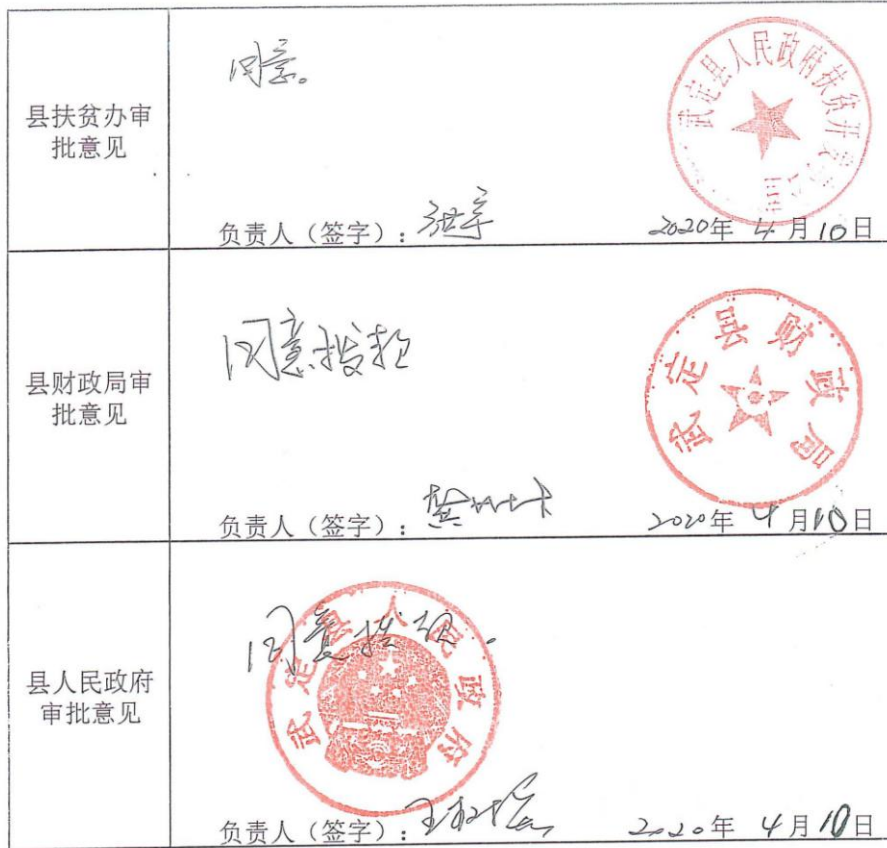 县扶贫办审
批意见
同意。
武定县人民政府扶贫开发
负责人（签字）：
2020年 4月10日
县财政局审
批意见
同意拨款
武定县财政局
负责人（签字）：
2020年 4月10日
县人民政府
审批意见
同意拨
武定县人民政府
负责人（签字）：
2020年 4月10日